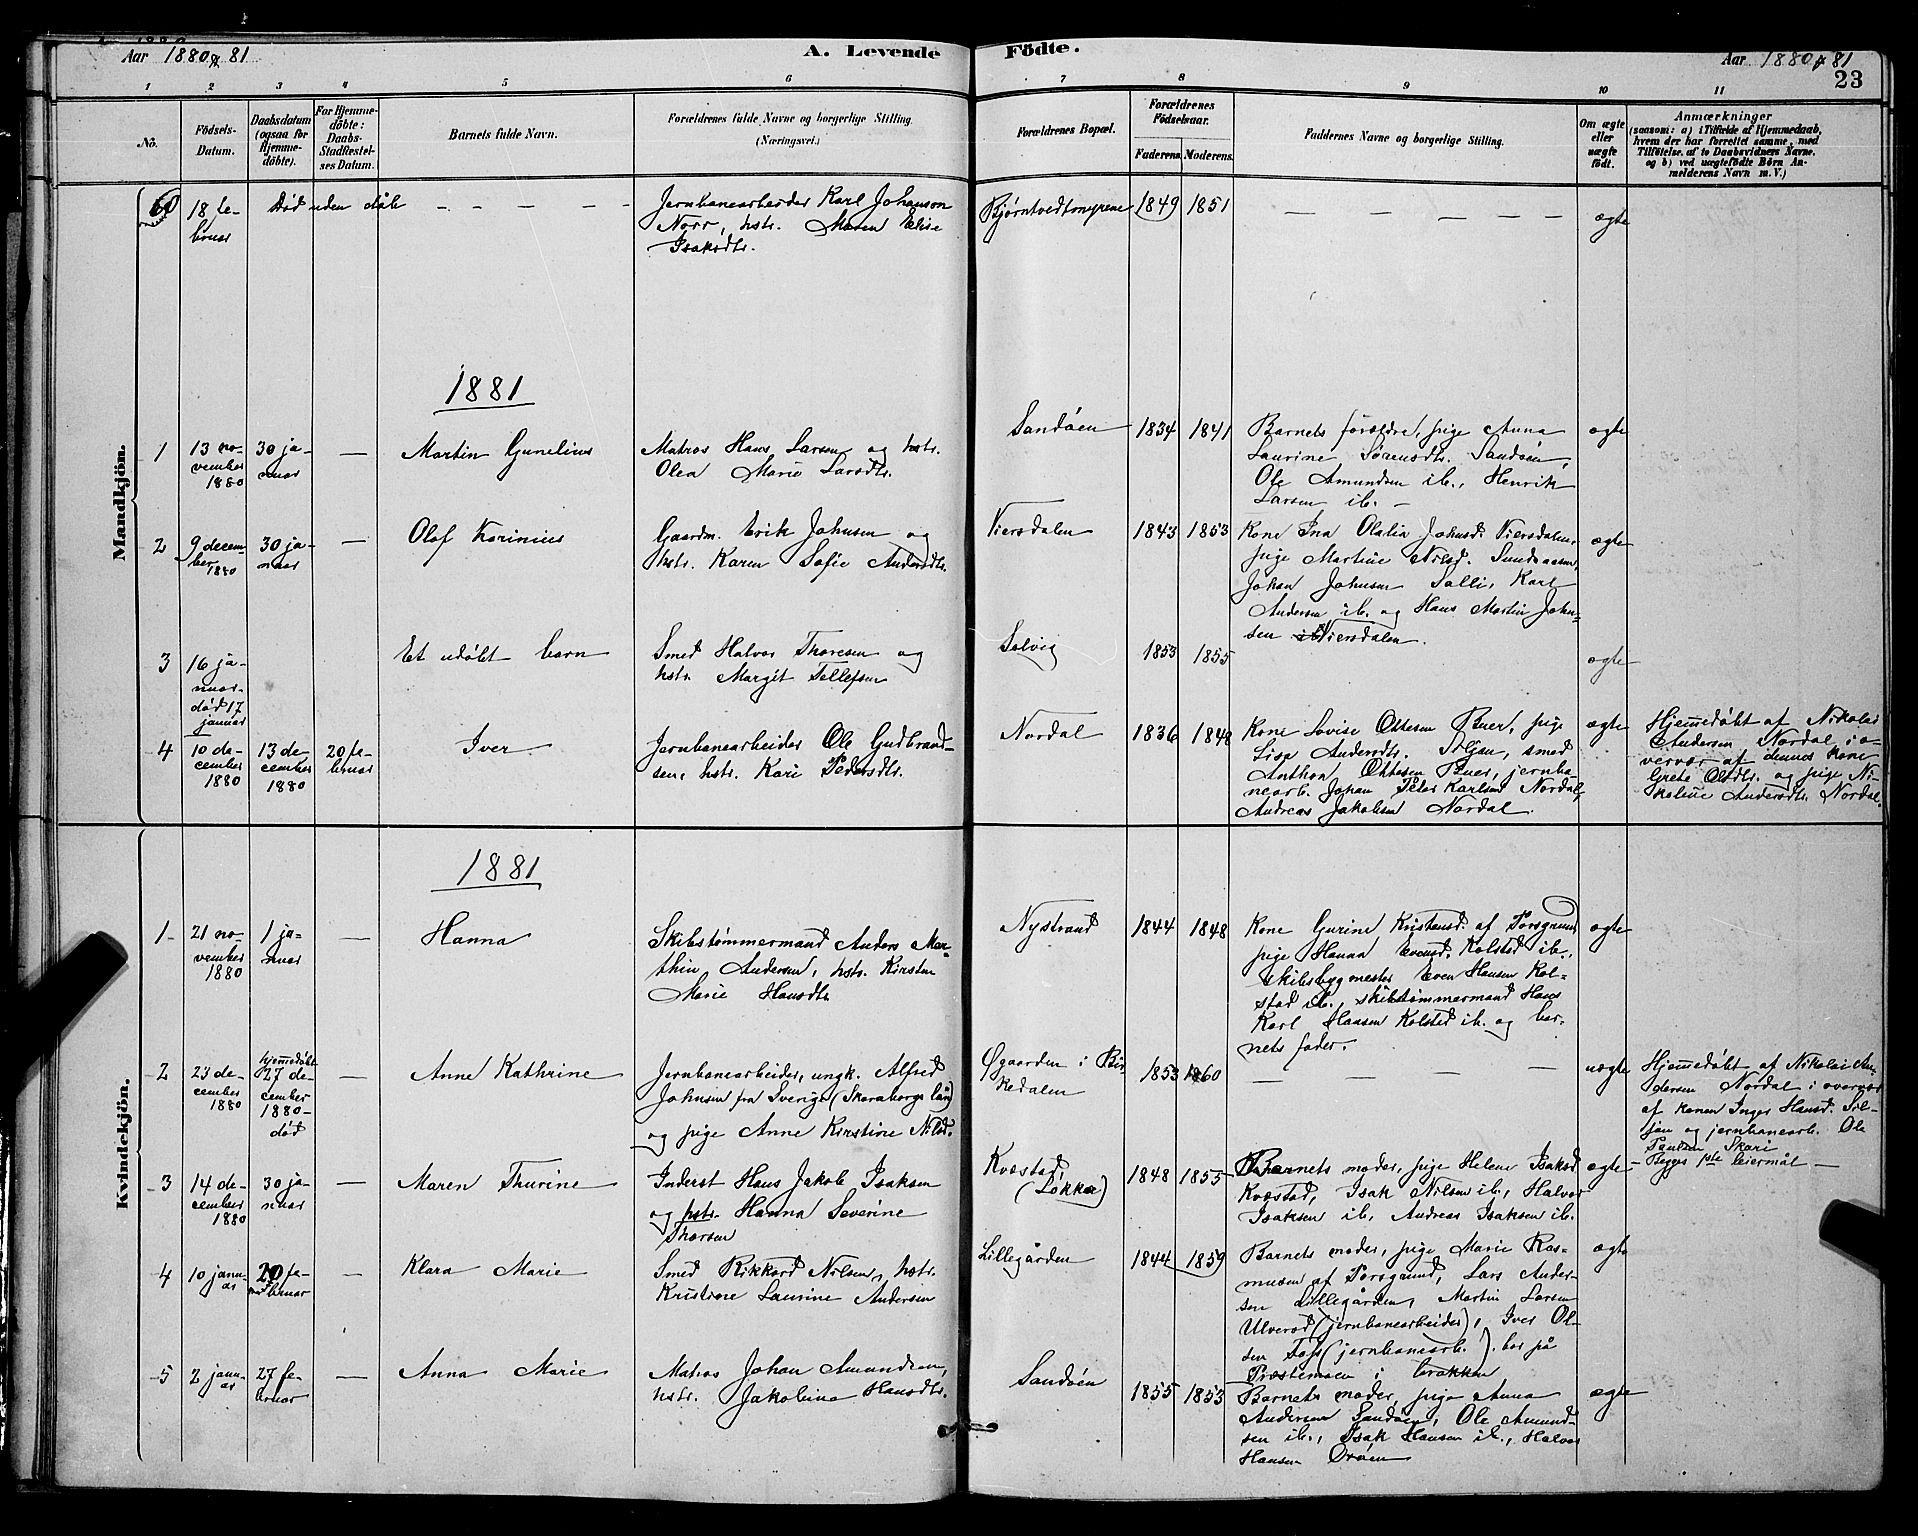 Aar 1880 & 81
A. Levende
Födte.
Aar 1880 & 81
23
1 2 3 4 5 6 7 8 9 10 11
No.
Födsels-
Datum.
Daabsdatum
(ogsaa for
Hjemme-
döbte).
For Hjemme-
döbte:
Daabs-
Stadfæstel-
ses Datum.
Barnets fulde Navn.
Forældrenes fulde Navne og borgerlige Stilling.
(Næringsvei.)
Forældrenes Bopæl.
Forældrenes
Födselsaar.
Faderens. Moderens.
Faddernes Navne og borgerlige Stilling.
Om ægte
eller
uægte
födt.
Anmærkninger
(saasom: a) i Tilfælde af Hjemmedaab,
hvem der har forrettet samme, med
Tilföielse af to Daabsvidners Navne,
og b) ved uægtefödte Börn An-
melderens Navn m. V.)
Mandkjön.
18 fe-
bruar
Død uden dåb
Jernbanearbeider Karl Johanson
Norr, hstr. Maren Elise
Isaksdtr.
Bjørntvedtmyrene
1849 1851
ægte
1881
1
13 no-
vember
1880
30 ja-
nuar
—
Martin Gunelius
Matros Hans Larsen og hstr.
Olea Marie Larsdtr.
Sandøen
1834 1841
Barnets forældre, pige Anna
Laurine Sørensdtr. Sandøen,
Ole Amundsen ib., Henrik
Larsen ib. —
ægte
2
9 decem-
ber 1880
30 ja-
nuar
—
Olaf Karinius
Gaardm. Erik Johnsen og
hstr. Karen Sofie Andersdtr.
Viersdalen
1843 1853
Kone Ina Olalia Johnsd. Viersdalen,
pige Martine Nilsd. Sundsaasen,
Johan Johnsen Salli, Karl
Andersen ib. og Hans Martin John-
sen Viersdalen.
ægte
3
16 ja-
nuar-
død 17
januar
Et udøbt barn
Smed Halvor Thoresen og
hstr. Margit Tellefsen
Solvig
1853 1855
ægte
4
10 de-
cember
1880
13 de-
cember
1880
20 fe-
bruar
Iver
Jernbanearbeider Ole Gudbrand-
sen, hstr. Kari Pedersdtr.
Nordal
1836 1848
Kone Lovise Ottesen Buer, pige
Lisa Andersdtr. Siljan, smed
Anthon Ottesen Buer, jernba-
nearb. Johan Peter Karlsen Nordal,
Andreas Jakobsen Nordal.
ægte
Hjemmedøbt af Nikolai
Andersen Nordal i o-
vervær af dennes kone
Grete Olsdtr. og pige Ni-
koline Andersdtr. Nordal.
Kvindekjön.
1881
1
21 no-
vember
1880
1 ja-
nuar
—
Hanna
Skibstømmermand Anders Mar-
thin Andersen, hstr. Kirsten
Marie Hansdtr.
Nystrand
1844 1848
Kone Gurine Kristensd. af Porsgrund
pige Hanna Evensd. Kolstad ib.,
skibsbygmester Even Hansen Kol-
stad ib., skibstømmermand Hans
Karl Hansen Kolstad ib. og bar-
nets fader.
ægte
2
23 de-
cember
1880
hjemmedøbt
27 de-
cember
1880-
død
—
Anne Kathrine
Jernbanearbeider, ungk. Alfred
Johnsen fra Sverige (Skaraborgs län)
og pige Anne Kirstine Nilsd.
Øgaarden i Bir-
kedalen
1853 1860
uægte
Hjemmedøbt af Nikolai An-
dersen Nordal i overvær
af konen Inger Hansd. Sil-
jan og jernbanearb. Ole
Paulsen Skari
Begges 1ste leiermål —
3
14 de-
cember
1880
30 ja-
nuar
—
Maren Thurine
Inderst Hans Jakob Isaksen
og hstr. Hanna Severine
Thorsen
Kvæstad,
(Løkka)
1848 1855
Barnets moder, pige Helene Isaksd
Kvæstad, Isak Nilsen ib., Halvor
Isaksen ib., Andreas Isaksen ib.
ægte
4
10 janu-
ar
20 fe-
bruar
—
Klara Marie
Smed Rikkard Nilsen, hstr.
Kristine Laurine Andersen
Lillegården
1844 1859
Barnets moder, pige Marie Ras-
musen af Porsgrund, Lars Ander-
sen Lillegården, Martin Larsen
Ulverød (jernbanearbeider), Iver Ol-
sen Foss (jernbanearb.). bor på
Præstemoen i brakken
ægte
5
2 janu-
ar
27 fe-
bruar
—
Anna Marie
Matros Johan Amundsen,
hstr. Jakobine Hansdtr.
Sandøen
1855 1853
Barnets moder, pige Anna
Andersen Sandøen, Ole Amund-
sen ib., Isak Hansen ib., Halvor
Hansen Ørøen
ægte